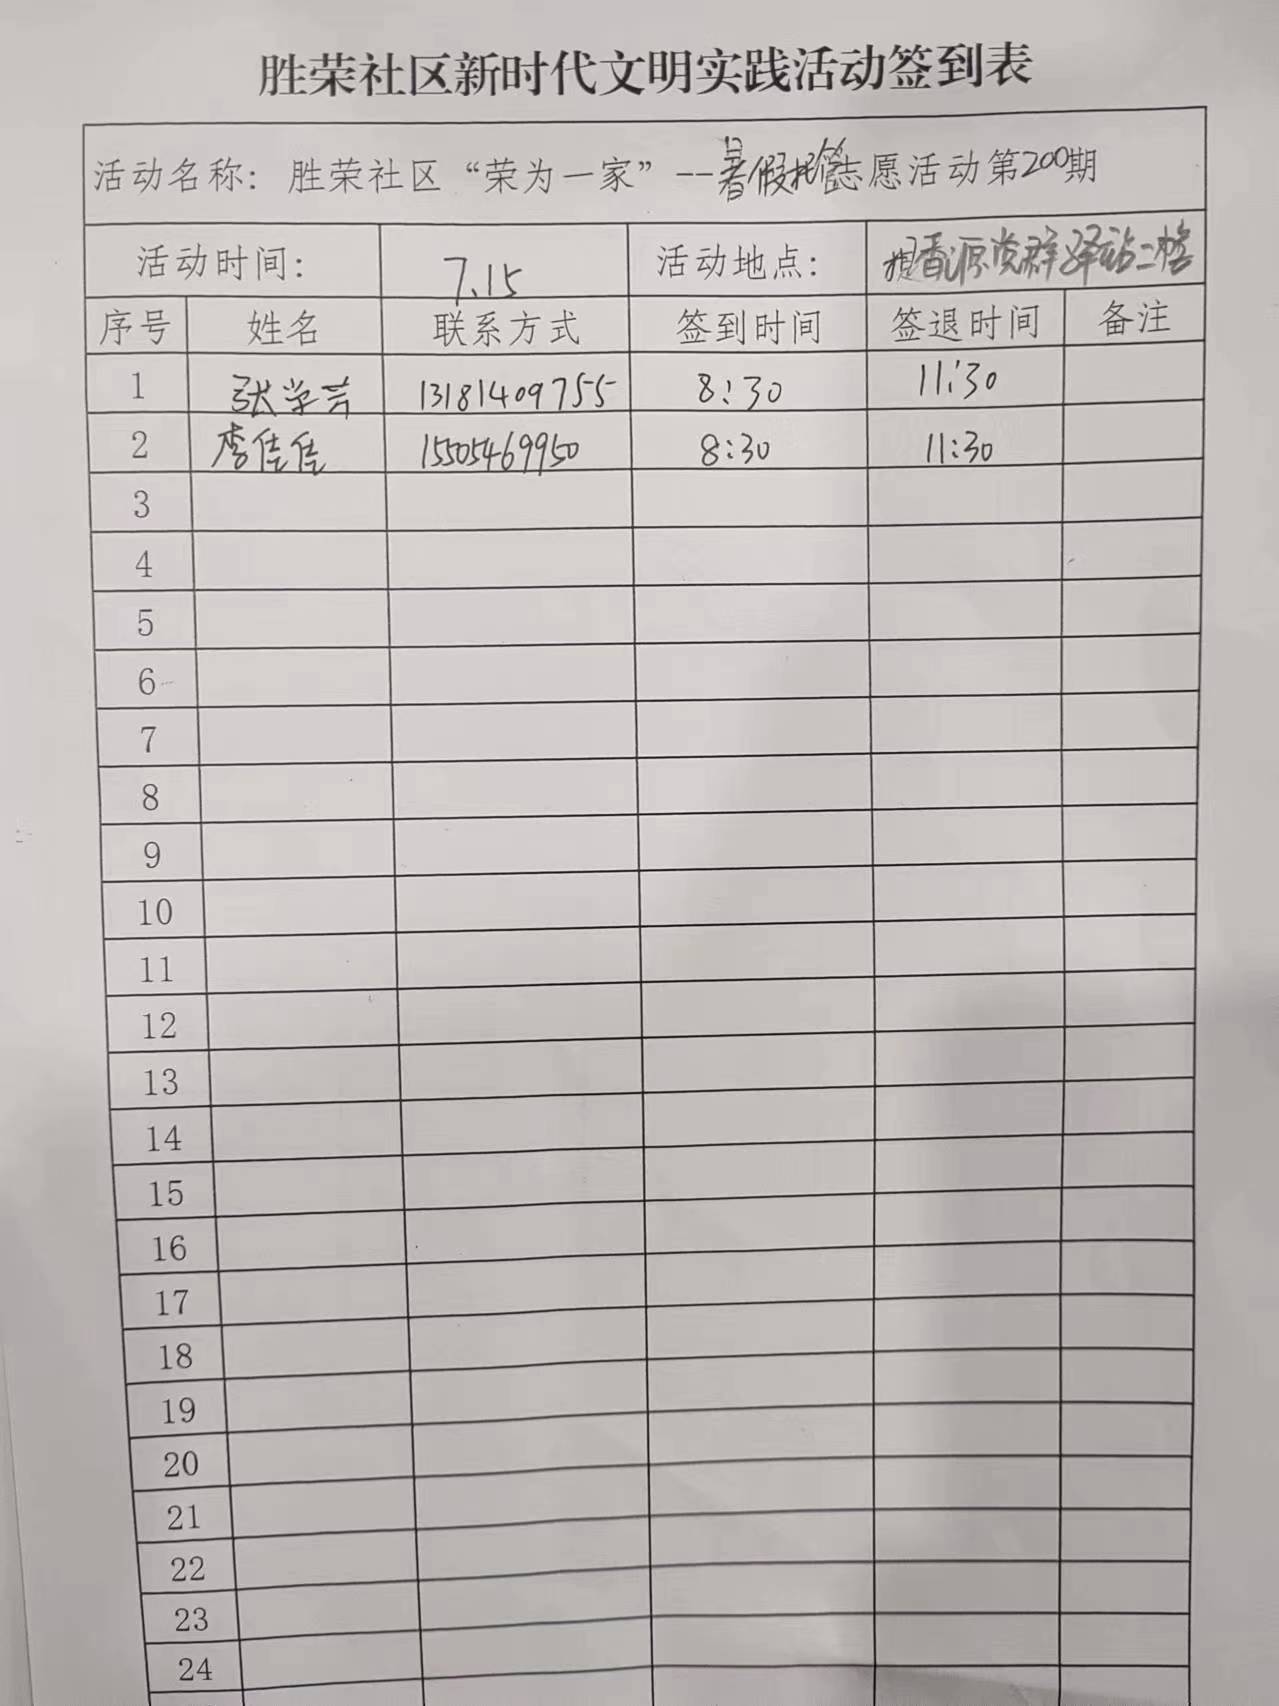 胜荣社区新时代文明实践活动签到表
活动名称：胜荣社区“荣为一家”--暑假托管志愿活动第200期
活动时间： 7.15 活动地点： 香源党群驿站二楼
序号 姓名 联系方式 签到时间 签退时间 备注
1 张学芳 13181409755 8:30 11:30
2 李佳佳 15505469950 8:30 11:30
3
4
5
6
7
8
9
10
11
12
13
14
15
16
17
18
19
20
21
22
23
24